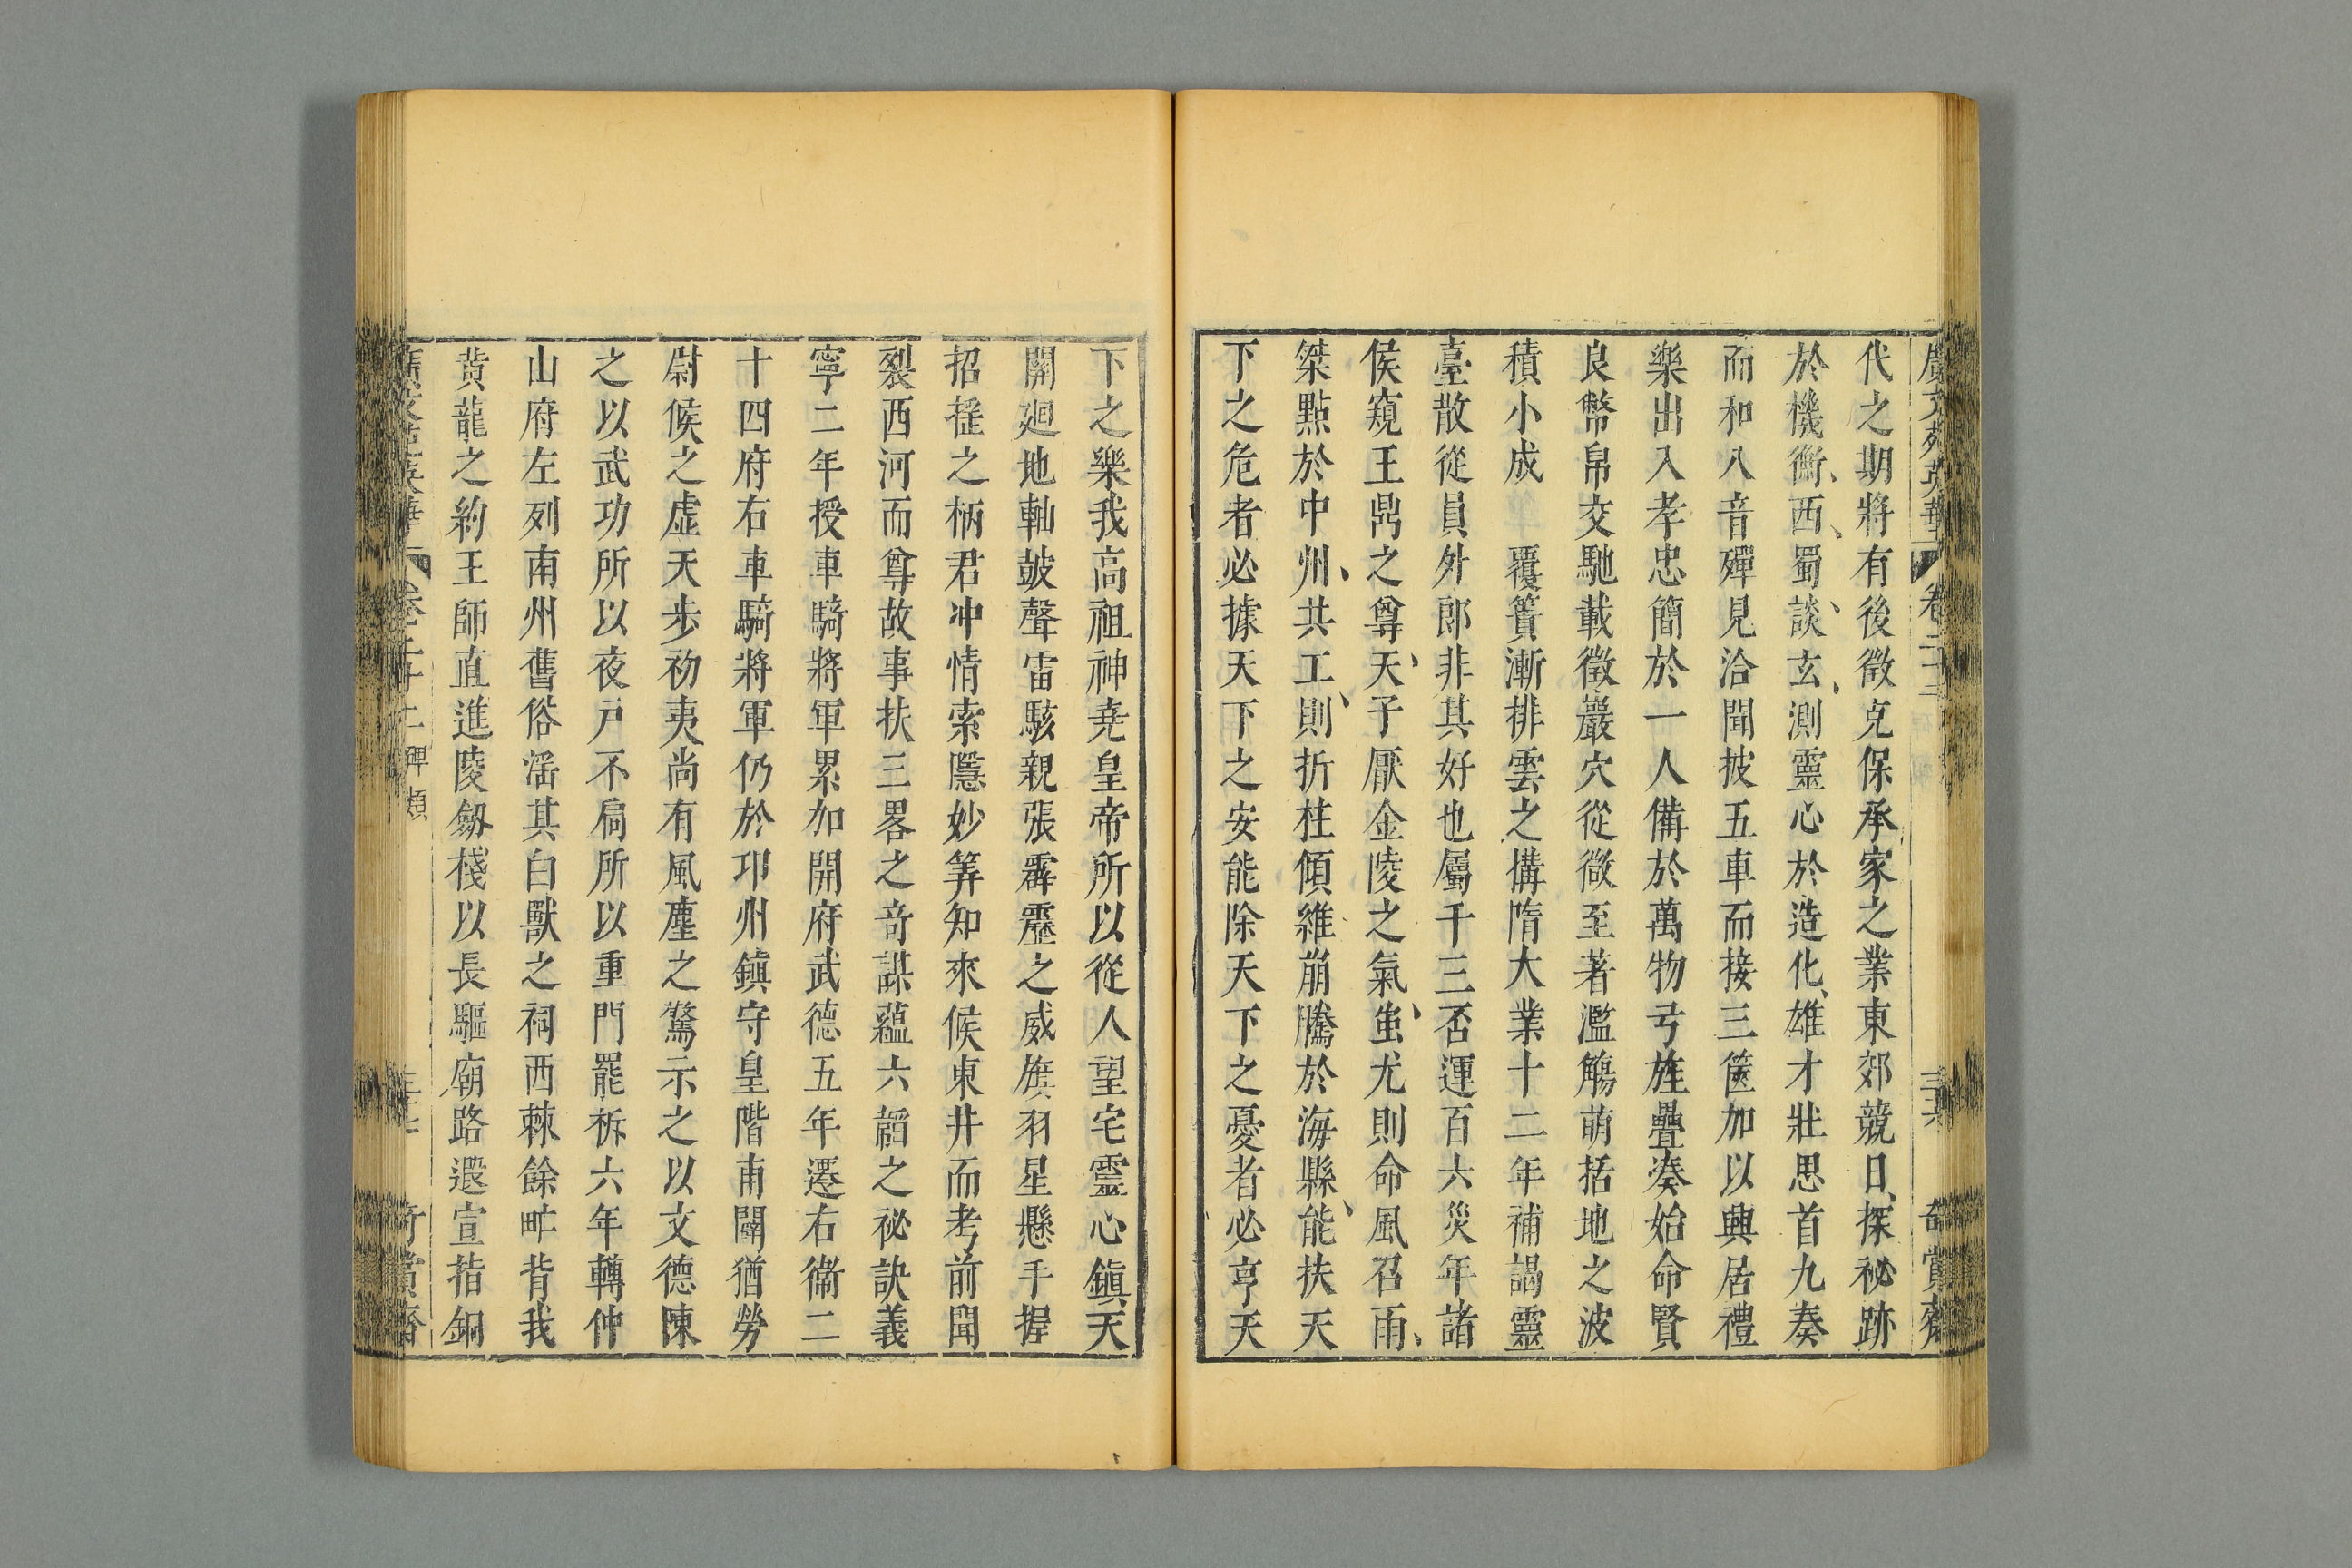 廣文苑英華 卷二十二 三十六 奇賞齋
代之期將有後徵克保承家之業東郊競日探祕跡
於機衡西蜀談玄測靈心於造化雄才壯思首九奏
而和八音殫見洽聞披五車而接三篋加以興居禮
樂出入孝忠簡於一人備於萬物弓旌疊湊始命賢
良幣帛交馳載徵巖穴從微至著濫觴萌括地之波
積小成 覆簣漸排雲之搆隋大業十二年補謁靈
臺散從員外郎非其好也屬千三否運百六災年諸
侯窺王鼎之尊天子厭金陵之氣蚩尤則命風召雨
桀點於中州共工則折柱傾維崩騰於海縣能扶天
下之危者必據天下之安能除天下之憂者必亨天
下之樂我高祖神堯皇帝所以從人望宅靈心鎮天
開廻地軸皷聲雷駭親張霹靂之威旗羽星懸手握
招搖之柄君冲情索隱妙筭知來候東井而考前聞
裂西河而尊故事扶三畧之奇謀蘊六韜之祕訣義
寧二年授車騎將軍累加開府武德五年遷右衞二
十四府右車騎將軍仍於邛州鎮守皇階甫闡猶勞
尉候之虛天步初夷尚有風塵之驚示之以文德陳
之以武功所以夜戶不扃所以重門罷柝六年轉仲
山府左列南州舊俗滛其白獸之祠西棘餘甿背我
黃龍之約王師直進陵劔棧以長驅廟路遐宣指銅
廣文苑英華 卷二十二 碑類 三十七 奇賞齋